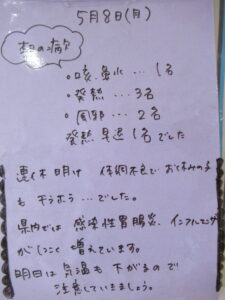 5月8日(月)
本日の病欠
・咳・鼻水…1名
・発熱…3名
・　…2名
発熱早退1名でした
連休明け 体調不良でお休みの子
も 〃 …でした。
県内では 感染性胃腸炎、インフルエンザ
がしつこく増えています。
明日は気温も下がるので
注意していきましょう。